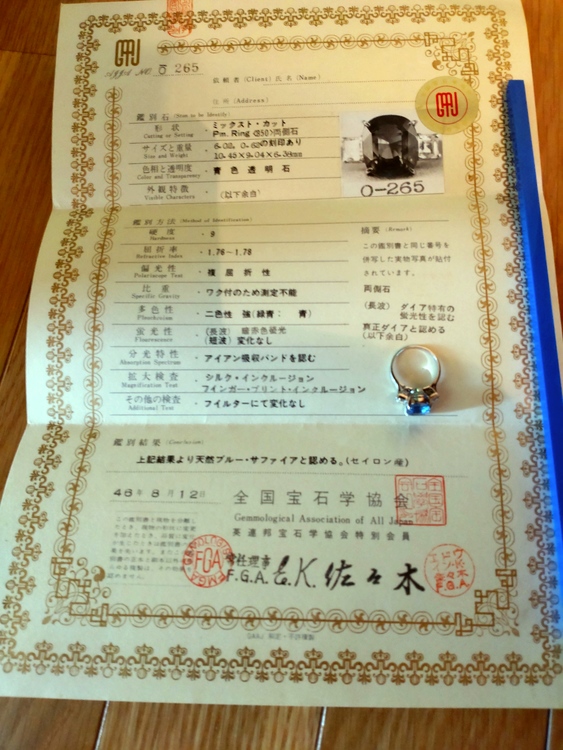 GAAJ
AGGA NO. 0̄ 265
依頼者(Client)氏名(Name)
住所(Address)
鑑別石(Item to be Identify)
形状 ・ミックスト・カット
Cutting or Setting Pm. Ring (850)両側石
サイズと重量 ・6.02, 0.62の刻印あり
Size and Weight 10.45×9.04×6.38mm
色相と透明度 ・青色透明石
Color and Transparency
外観特徴 ・(以下余白)
Visible Characters
0-265
鑑別方法(Method of Identification)
硬度 ・9
Hardness
屈折率 ・1.76-1.78
Refractive Index
偏光性 ・複屈折性
Polariscope Test
比重 ・ワク付のため測定不能
Specific Gravity
多色性 ・二色性 強(緑青: 青)
Pleochroism
蛍光性 (長波)暗赤色螢光
Fluorescence (短波)変化なし
分光特性 ・アイアン吸収バンドを認む
Absorption Spectrum
拡大検査 ・シルク・インクルージョン
Magnification Test フインガー・プリント・インクルージョン
その他の検査 ・フイルターにて変化なし
Additional Test
摘要(Remark)
この鑑別書と同じ番号を
併写した実物写真が貼付
されています。
両側石
(長波)ダイア特有の
螢光性を認む
真正ダイアと認める
(以下余白)
鑑別結果(Conclusion)
上記結果より天然ブルー・サファイアと認める。(セイロン産)
46年8月12日
全国宝石学協会
Gemmological Association of All Japan
英連邦宝石学協会特別会員
FGA
F.G.A. 佐々木
F.G.A